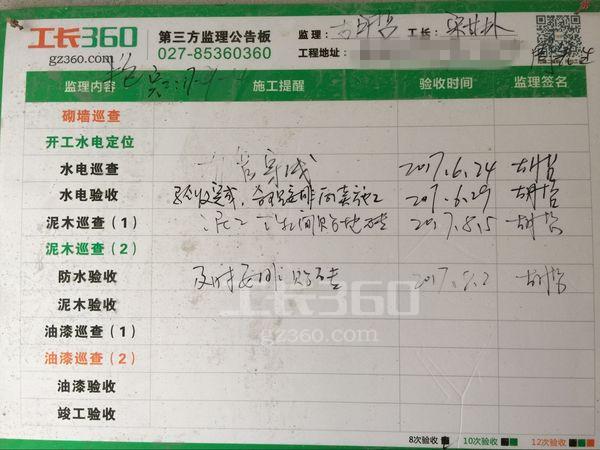 工长360
gz360.com
第三方监理公告板
027-85360360
监理： 工长：
工程地址：
监理内容 施工提醒 验收时间 监理签名
砌墙巡查
开工水电定位
水电巡查 完成 2017.6.24 胡哲
水电验收 验收完成， 2017.6.29 胡哲
泥木巡查（1） 贴地砖 2017.8.5 胡哲
泥木巡查（2）
防水验收 及时安排贴砖 胡哲
泥木验收
油漆巡查（1）
油漆巡查（2）
油漆验收
竣工验收
工长360
gz360.com
8次验收 10次验收 12次验收